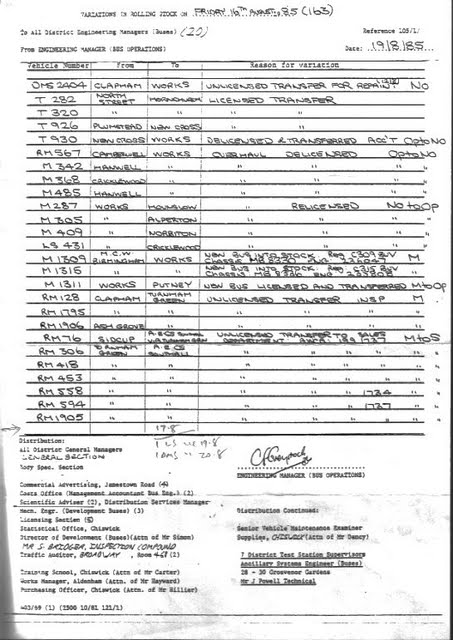 VARIATIONS IN ROLLING STOCK ON FRIDAY 16TH AUGUST, 85 (163)
To All District Engineering Managers (Buses) (20) Reference 105/1/
From ENGINEERING MANAGER (BUS OPERATIONS) Date: 19/8/85
Vehicle Number From To Reason for variation
DMS 2404 CLAPHAM WORKS UNLICENSED TRANSFER FOR REPAIR NO
T 282 NORTH STREET HORNCHURCH LICENSED TRANSFER
T 320 " " "
T 926 PLUMSTEAD NEW CROSS " "
T 930 NEW CROSS WORKS DELICENSED & TRANSFERRED ACC'T O to NO
RM 567 CAMBERWELL WORKS OVERHAUL DELICENSED O to NO
M 342 HANWELL " " " "
M 368 CRICKLEWOOD " " " "
M 485 HANWELL " " " "
M 287 WORKS HOUNSLOW RELICENSED NO to OP
M 305 " ALPERTON " "
M 409 " NORBITON " "
LS 431 " CRICKLEWOOD " "
M 1309 M.C.W. BIRMINGHAM WORKS NEW BUS INTO STOCK. Reg C309 BUV M
M 1315 " " NEW BUS INTO STOCK. Reg C315 BUV "
M 1311 WORKS PUTNEY NEW BUS LICENSED AND TRANSFERRED M to OP
RM 128 CLAPHAM TURNHAM GREEN UNLICENSED TRANSFER INSP M
RM 1795 " " " " " "
RM 1906 ASH GROVE " " " " "
RM 76 SIDCUP UNLICENSED TRANSFER TO SALES DEPARTMENT M to S
RM 306 TURNHAM GREEN A.E.C'S SOUTHALL " " " "
RM 418 " " " " " "
RM 453 " " " " " "
RM 558 " " " " 1734 "
RM 594 " " " " 1737 "
RM 1905 " " " " " "
17.8
Distribution:
All District General Managers
GENERAL SECTION
Body Spec. Section
ENGINEERING MANAGER (BUS OPERATIONS)
Commercial Advertising, Jamestown Road
Costs Office (Management Accountant Bus Eng.) (2)
Scientific Adviser (2), Distribution Services Manager
Mech. Engr. (Development Buses) (3) Distribution Continued:
Licensing Section
Statistical Office, Chiswick Senior Vehicle Maintenance Examiner
Director of Development (Buses)(Attn of Mr Simon) Supplies, CHISWICK (Attn of Mr Dancy)
INSPECTION COMPOUND
Traffic Auditor, BROADWAY, Room 7 District Test Station Supervisors
Ancillary Systems Engineer (Buses)
Training School, Chiswick (Attn of Mr Carter) 28 - 30 Grosvenor Gardens
Works Manager, Aldenham (Attn. of Mr Hayward) Mr J Powell Technical
Purchasing Officer, Chiswick (Attn. of Mr Hillier)
403/69 (1) (2300 10/81 121/1)